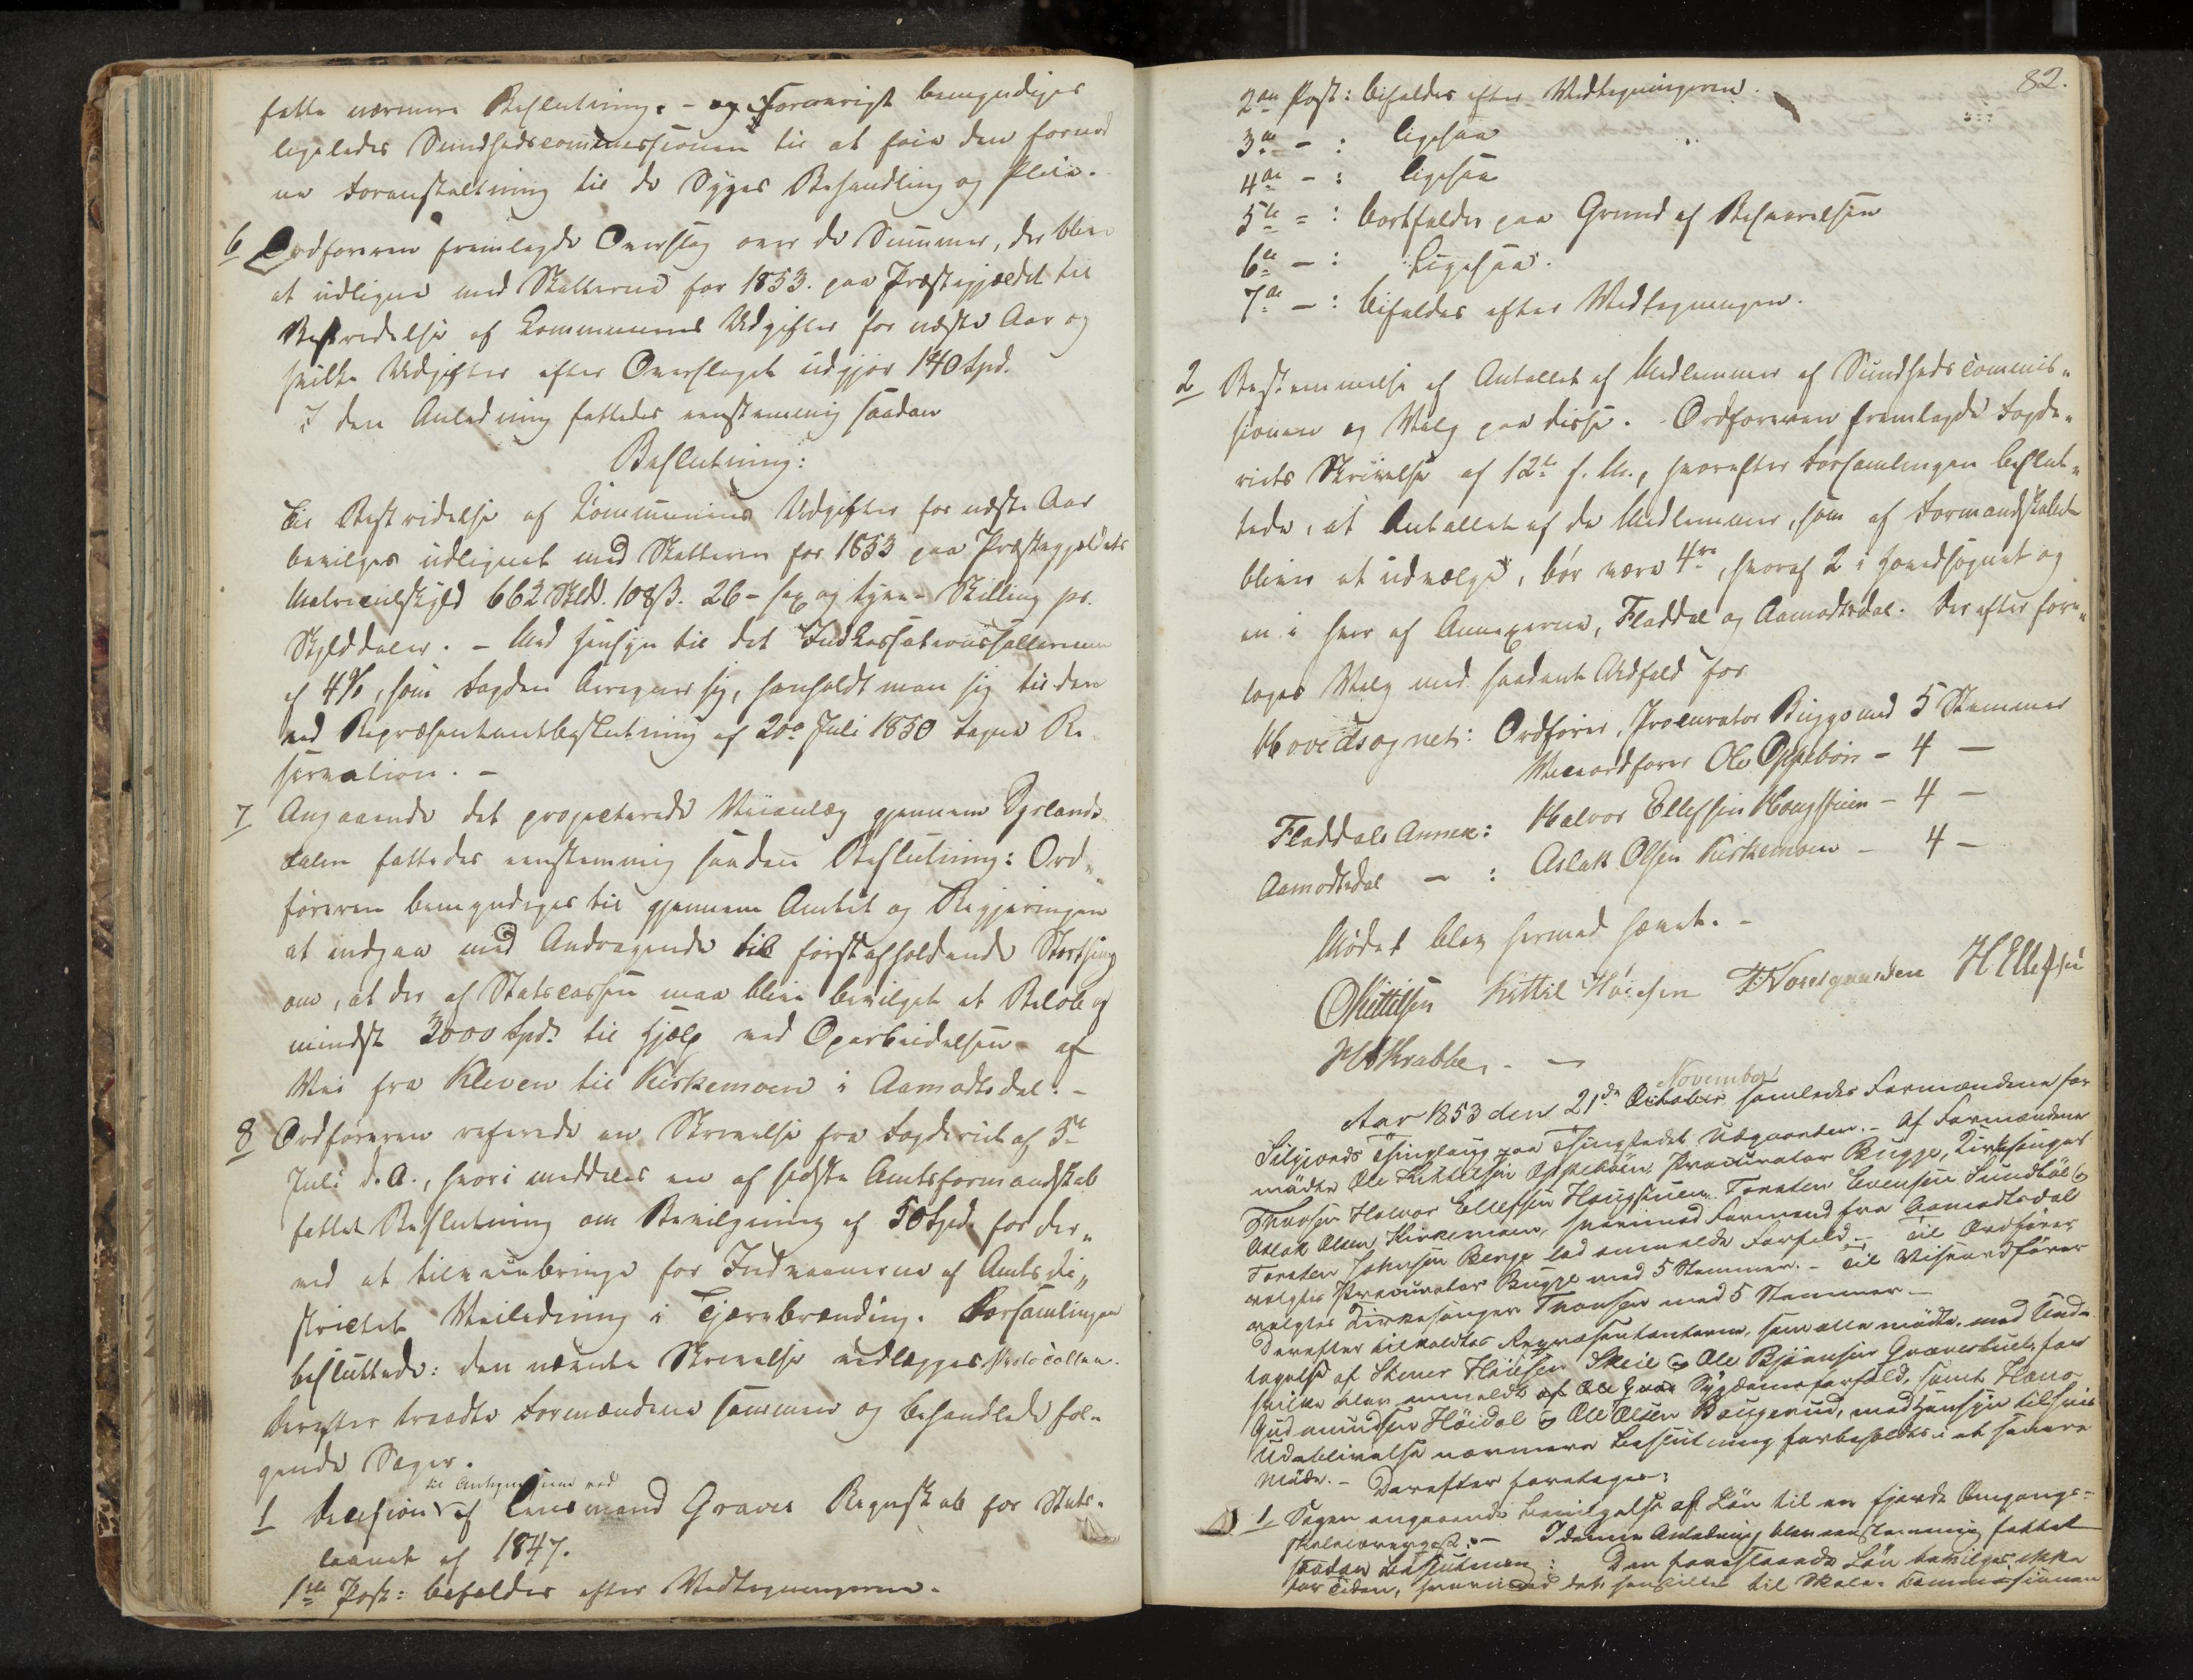 fatte nærmere Beslutning. - og forøvrigt bemyndiges
ligeledes Sundhedscommissionen til at føie den fornød
ne Foranstaltning til de Syges Behandling og Pleie.
6 Ordføreren fremlagde Overslag over de Summer, der blive
at udligne med Skatterne for 1853. paa Præstegjældet til
Bestridelse af Kommunens Udgifter for næste Aar og
hvilke Udgifter efter Overslaget udgjør 140 Spd.
I den Anledning fattedes eenstemmig saadan
Beslutning:
Til Bestridelse af Kommunens Udgifter for næste Aar
bevilges udlignet med Skatterne for 1853 paa Præstegjeldets
Matriculskyld 662 Skldd. 108 ß. 26 - sex og tyve - Skilling pr.
Skylddaler. - Med Hensyn til det Indkassationssallarium
af 4%, som Fogden beregner sig, henholdt man sig til den
ved Repræsentantbeslutning af 20de Juli 1850 tagne Re
servation. -
7 Angaaende det projecterede Veianlæg gjennem
dalen fattedes eenstemmig saadan Beslutning: Ord„
føreren bemyndiges til gjennem Amtet og Regjeringen
at indgaa med Andragende til førstafholdende Storthing
om, at der af Statscassen maa blive bevilget et Beløb af
mindst 3000 Spd. til Hjælp ved Oparbeidelsen af
Vei fra Kleven til Kirkemoen i Aamodtsdal. -
8 Ordføreren refererede en Skrivelse fra Fogderiet af 5te
Juli d. A., hvori meddeles en af sidste Amtsformandskab
fattet Beslutning om Bevilgning af 50 Spd. for der„
ved at tilveiebringe for Indvaanerne af Amtsdi„
strictet Veiledning i Tjærebrænding. Forsamlingen
besluttede: den nævnte Skrivelse vedlægges Protocollen.
Derefter traadte Formændene sammen og behandlede føl-
gende Sager.
til Antegnelserne ved
1 Decision af Lensmand Graver Regnskab for Stats-
laanet af 1847.
1ste Post: bifaldes efter Vedtegningerne.
82.
2den Post: bifaldes efter Vedtegningerne.
3die - : ligesaa
4de - : ligesaa
5te - : bortfalder paa Grund af Besvarelsen
6te - : Ligesaa.
7de - : bifaldes efter Vedtegningen.
2 Bestemmelse af Antallet af Medlemmer af Sundhedscommis„
sionen og Valg paa disse. Ordføreren fremlagde Fogde„
riets Skrivelse af 12te f. M., hvorefter Forsamlingen beslut„
tede, at Antallet af de Medlemmer, som af Formandskabet
bliver at udvælge, bør være 4re, hvoraf 2 i Hovedsognet og
en i hver af Annexerne, Fladdal og Aamodtsdal. Derefter fore„
toges Valg med saadant Udfald for
Hovedsognet: Ordfører, Procurator Bugge med 5 Stemmer
Viceordfører Ole Oppebøen - 4 -
Fladdals Annex: Halvor Ellefsen Haugstuen - 4 -
Aamodtsdal - : Aslak Olsen Kirkemoen - 4 -
Mødet blev hermed hævet. -
OKittilsen Kittil H. Ellefsen
Krabbe. -
November
Aar 1853 den 21de October samledes Formændene for
Siljords Thinglaug paa Thingstedet Uvgaarden. - Af Formændene
mødte Ole Kittelsen Oppebøen, Procurator Bugge, Kirkesanger
Tvonsen, Halvor Ellefsen Haugstuen, Torsten Evensen Sundbøe og
Aslak Olsen Kirkemoen, hvorimod Formand fra Aamodtsdal
Torsten Johnsen Berge lod anmelde Forfald. - Til Ordfører
valgtes Procurator Bugge med 5 Stemmer. - Til Viseordfører
valgtes Kirkesanger Tvonsen med 5 Stemmer. -
Derefter tilkaldtes Repræsentanterne, som alle mødte, med Und-
tagelse af Stener Høiesen Skeie og Ole Bjørnsen for
hvilke blev anmeldt Sygdomsforfald, samt
Gudmundsen Høidal og Ole Olsen Baugerud, med Hensyn til hvis
Udeblivelse nærmere Beslutning forbeholdtes i et senere
Møde. - Derefter foretoges:
1 Sagen angaaende Bevilgelse af Løn til en fjerde Omgangs-
skolelærer - I denne Anledning blev eenstemmig fattet
saadan Beslutning: Den foreslaaede Løn bevilges ikke
for Tiden, hvorimod det henstilles til Skole-Commissionen